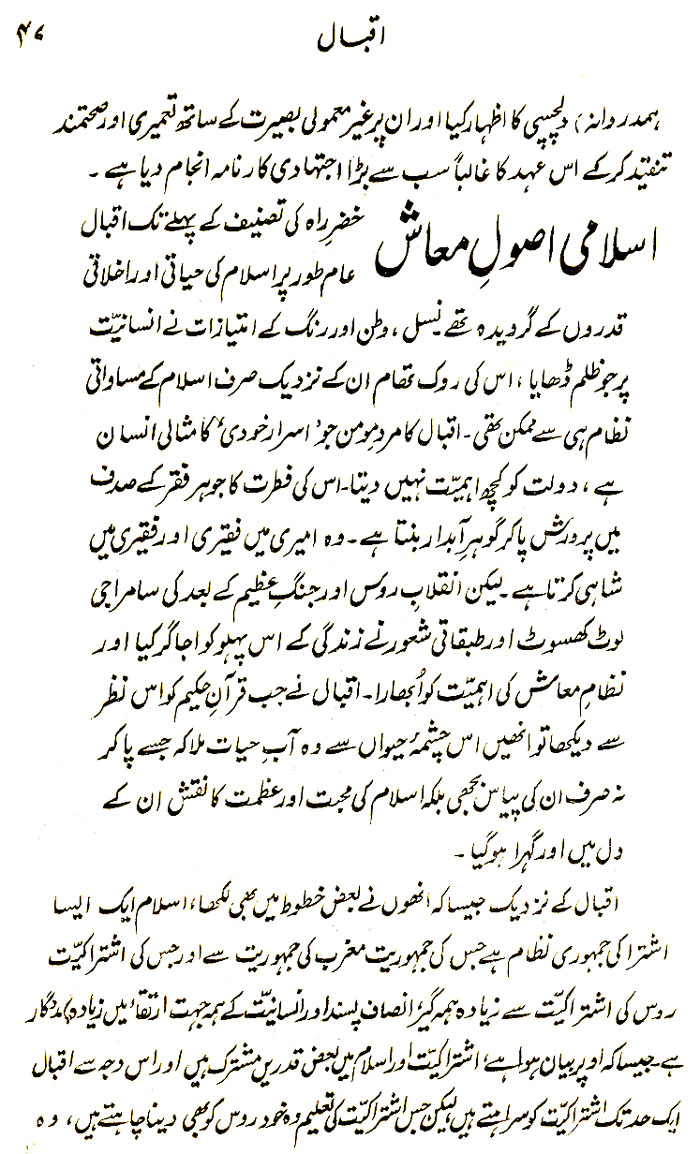 اقبال ۴۷
ہمدردانہ) دلچسپی کا اظہار کیا اور ان پر غیر معمولی بصیرت کے ساتھ تعمیری اور صحتمند
تنقید کر کے اس عہد کا غالباً سب سے بڑا اجتہادی کارنامہ انجام دیا ہے۔
اسلامی اصولِ معاش
خضرِ راہ کی تصنیف کے پہلے تک اقبال
عام طور پر اسلام کی حیاتی اور اخلاقی
قدروں کے گرویدہ تھے۔ نسل، وطن اور رنگ کے امتیازات نے انسانیّت
پر جو ظلم ڈھایا، اس کی روک تھام ان کے نزدیک صرف اسلام کے مساواتی
نظام ہی سے ممکن تھی۔ اقبال کا مردِ مومن جو ’اسرارِ خودی‘ کا مثالی انسان
ہے، دولت کو کچھ اہمیّت نہیں دیتا۔ اس کی فطرت کا جوہر فقر کے صدف
میں پرورش پا کر گوہرِ آبدار بنتا ہے۔ وہ امیری میں فقیری اور فقیری میں
شاہی کرتا ہے۔ لیکن انقلابِ روس اور جنگِ عظیم کے بعد کی سامراجی
لوٹ کھسوٹ اور طبقاتی شعور نے زندگی کے اس پہلو کو اجاگر کیا اور
نظامِ معاش کی اہمیّت کو اُبھارا۔ اقبال نے جب قرآنِ حکیم کو اس نظر
سے دیکھا تو انھیں اس چشمۂ حیواں سے وہ آبِ حیات ملا کہ جسے پا کر
نہ صرف ان کی پیاس بجھی بلکہ اسلام کی محبت اور عظمت کا نقش ان کے
دل میں اور گہرا ہو گیا۔
اقبال کے نزدیک جیسا کہ انھوں نے بعض خطوط میں بھی لکھا، اسلام ایک ایسا
اشتراکی جمہوری نظام ہے جس کی جمہوریت مغرب کی جمہوریت سے اور جس کی اشتراکیّت
روس کی اشتراکیّت سے زیادہ ہمہ گیر، انصاف پسند اور انسانیّت کے ہمہ جہت ارتقاء میں زیادہ مددگار
ہے۔ جیسا کہ اوپر بیان ہوا ہے، اشتراکیّت اور اسلام میں بعض قدریں مشترک ہیں اور اس وجہ سے اقبال
ایک حد تک اشتراکیّت کو سراہتے ہیں لیکن جس اشتراکیّت کی تعلیم وہ خود روس کو بھی دینا چاہتے ہیں، وہ